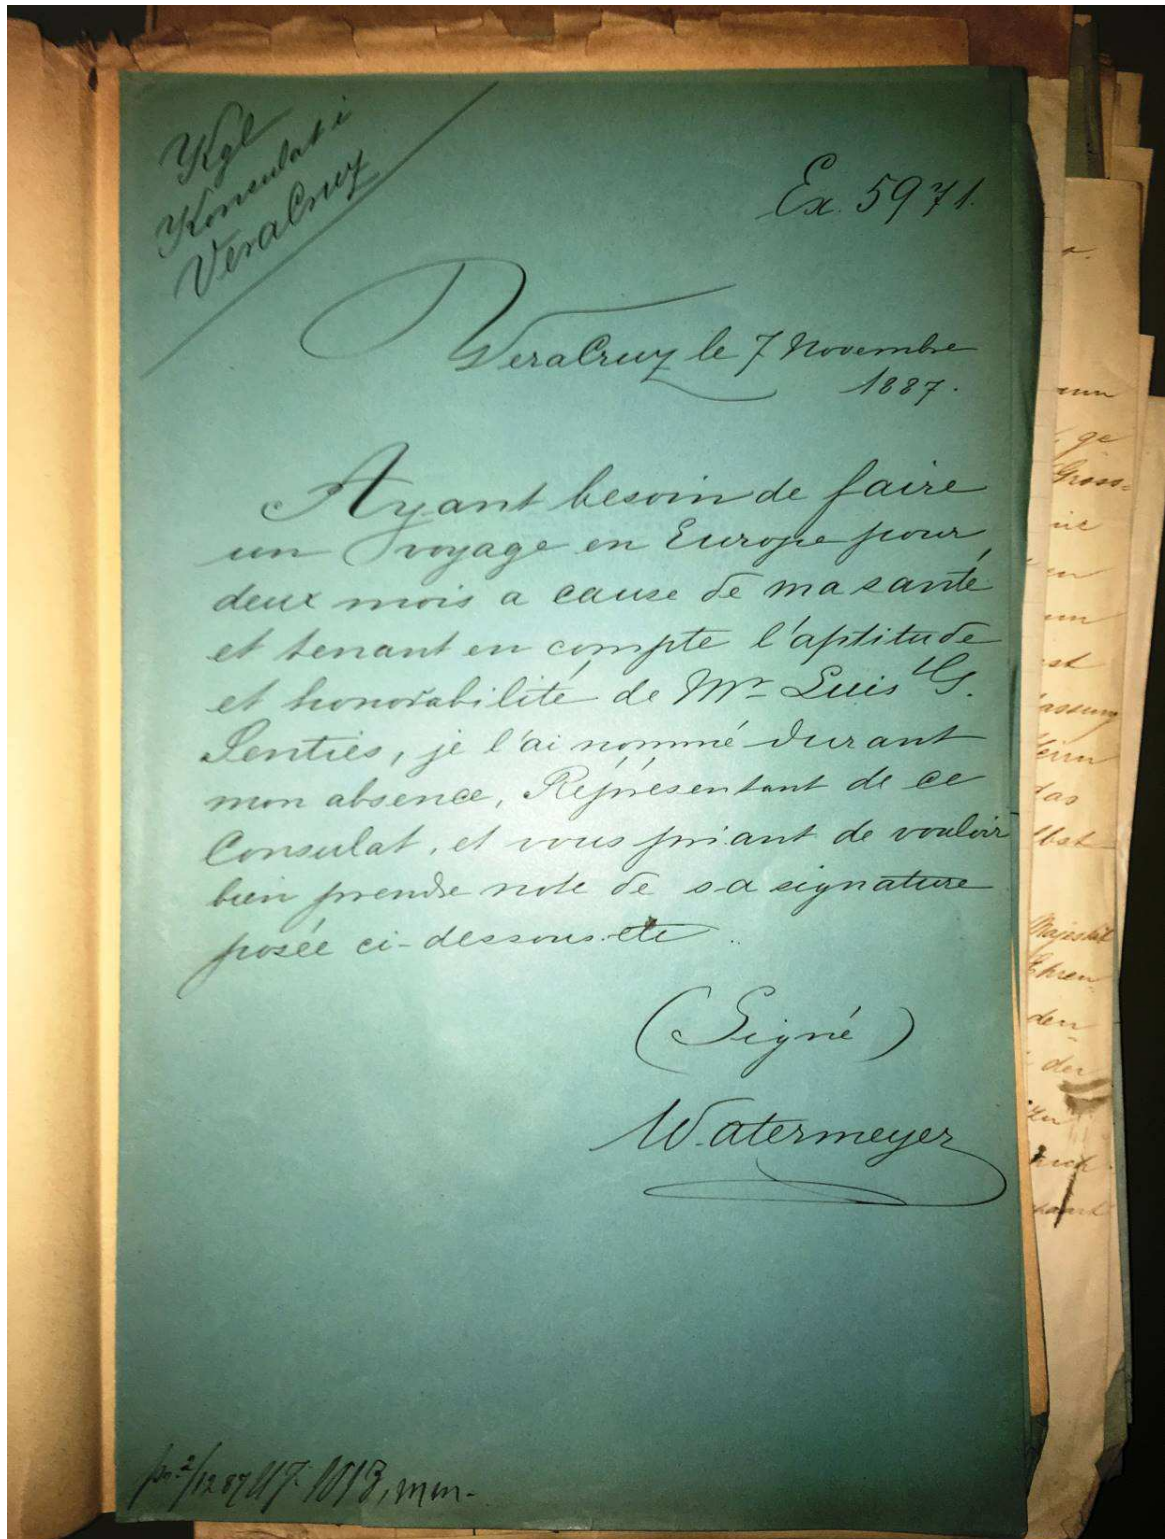 Kgl
Konsulat i
VeraCruz
Ex. 5971.
VeraCruz le 7 Novembre
1887.
Ayant besoin de faire
un voyage en Europe pour
deux mois a cause de ma santé
et tenant en compte l'aptitude
et honorabilité de Mr Luis G.
Senties, je l'ai nommé durant
mon absence, Représentant de ce
Consulat, et vous priant de vouloir
bien prendre note de sa signature
posée ci-dessous etc
(Signé)
Watermeyer
2/12 87
ge
Gross=
en
st
assung
das
lbst
Majestät
Ehren
den
der